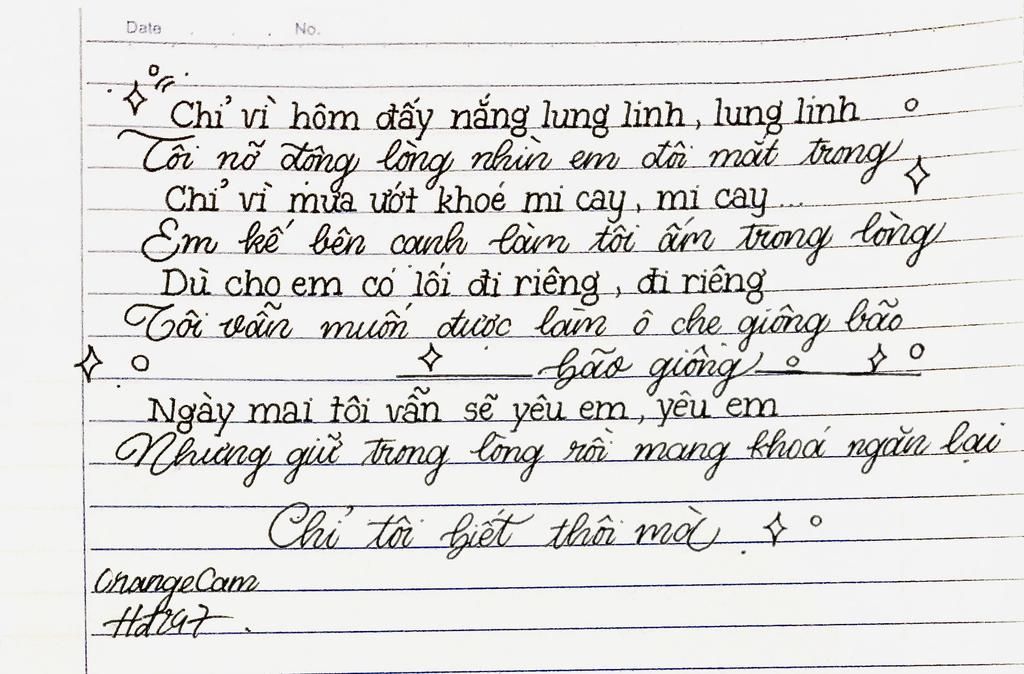 Date No.
Chỉ vì hôm đấy nắng lung linh, lung linh
Tôi nỡ động lòng nhìn em đôi mắt trong
Chỉ vì mưa ướt khoé mi cay, mi cay...
Em kế bên cạnh làm tôi ấm trong lòng
Dù cho em có lối đi riêng, đi riêng
Tôi vẫn muốn được làm ô che giông bão
bão giông
Ngày mai tôi vẫn sẽ yêu em, yêu em
Nhưng giữ trong lòng rồi mang khoá ngăn lại
Chỉ tôi biết thôi mà
OrangeCam